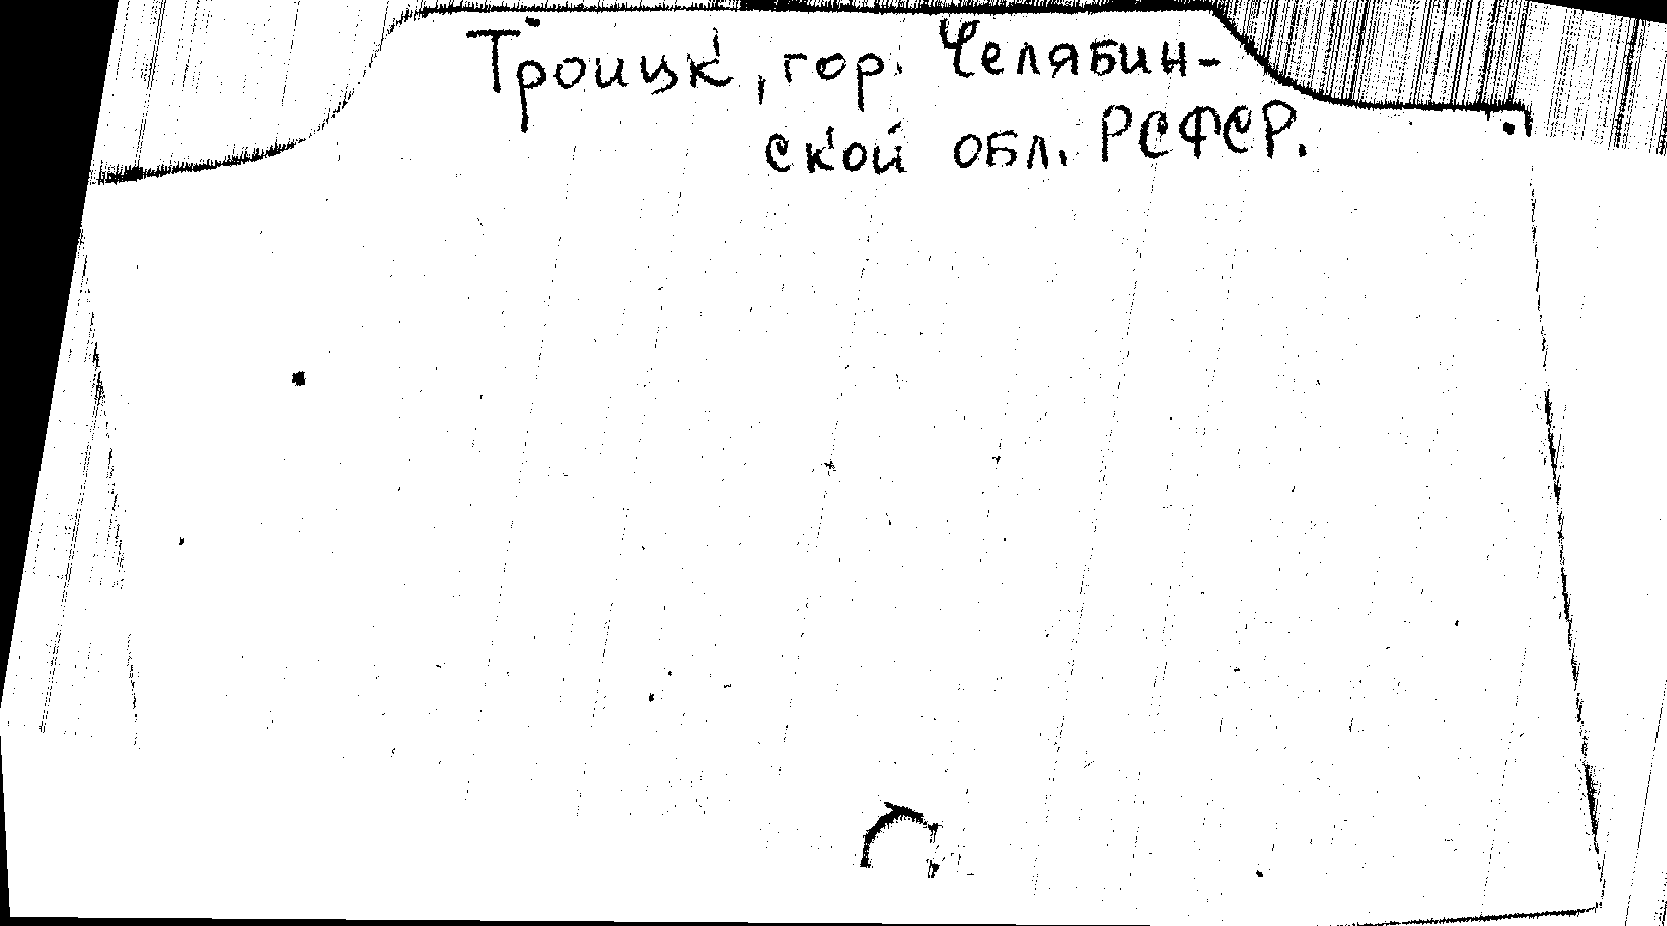 Троицк, гор. Челябин-
ской обл. РСФСР.